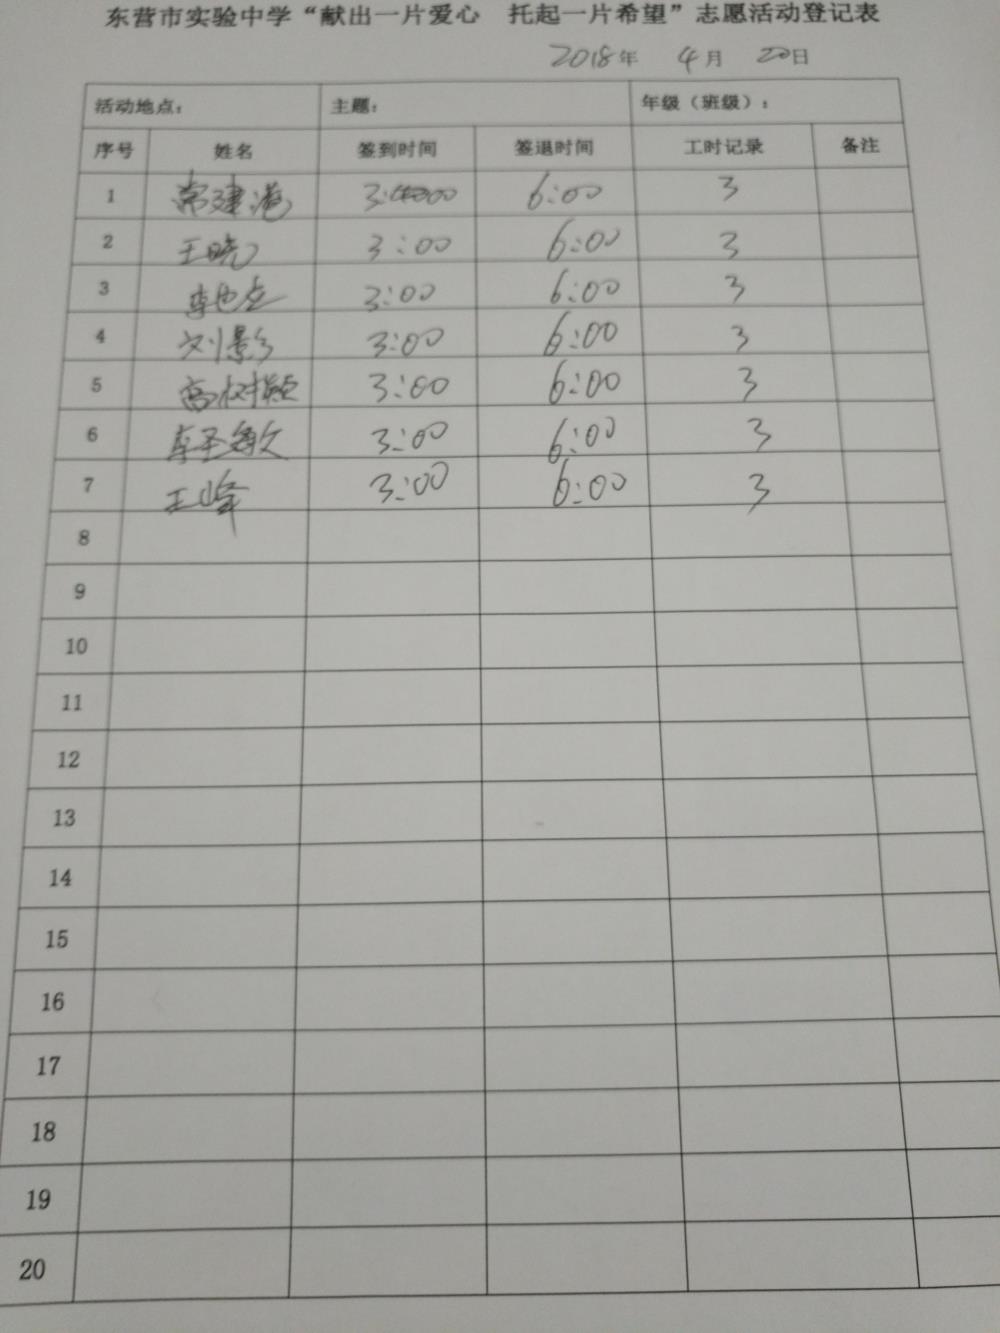 东营市实验中学“献出一片爱心 托起一片希望”志愿活动登记表
2018年 4月 20日
活动地点： 主题： 年级（班级）：
序号 姓名 签到时间 签退时间 工时记录 备注
1 常建港 3:00 6:00 3
2 王晓 3:00 6:00 3
3 3:00 6:00 3
4 刘影 3:00 6:00 3
5 高树颖 3:00 6:00 3
6 3:00 6:00 3
7 王峰 3:00 6:00 3
8
9
10
11
12
13
14
15
16
17
18
19
20